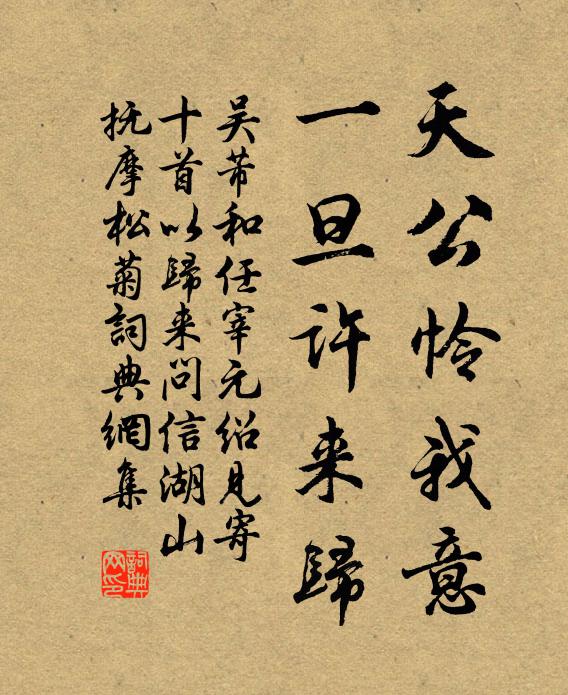 天公怜我意
一旦许来歸
吴芾和任宰元绍见寄
十首以歸来问信湖山
抚摩松菊詞典網集
詞典
网印